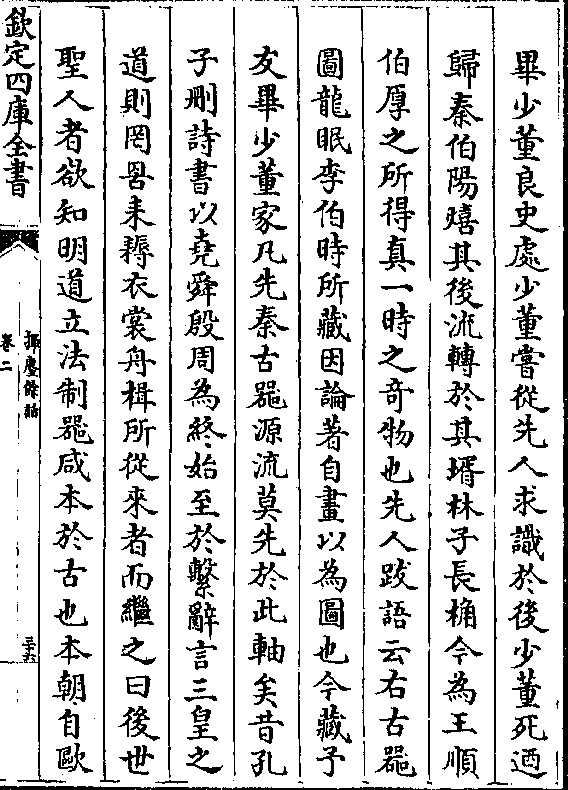 畢少董良史處少董嘗從先人求識於後少董死迺
歸秦伯陽熺其後流轉於其壻林子長桷今為王順
伯厚之所得真一時之竒物也先人跋語云右古器
圖龍眠李伯時所藏因論著自畫以為圖也今藏予
友畢少董家凡先秦古器源流莫先於此軸矣昔孔
子刪詩書以堯舜殷周為終始至於繫辭言三皇之
道則罔罟耒耨衣裳舟楫所從來者而繼之曰後世
聖人者欲知明道立法制器咸本於古也本朝自歐
欽定四庫全書
揮麈餘話
卷二
三十六